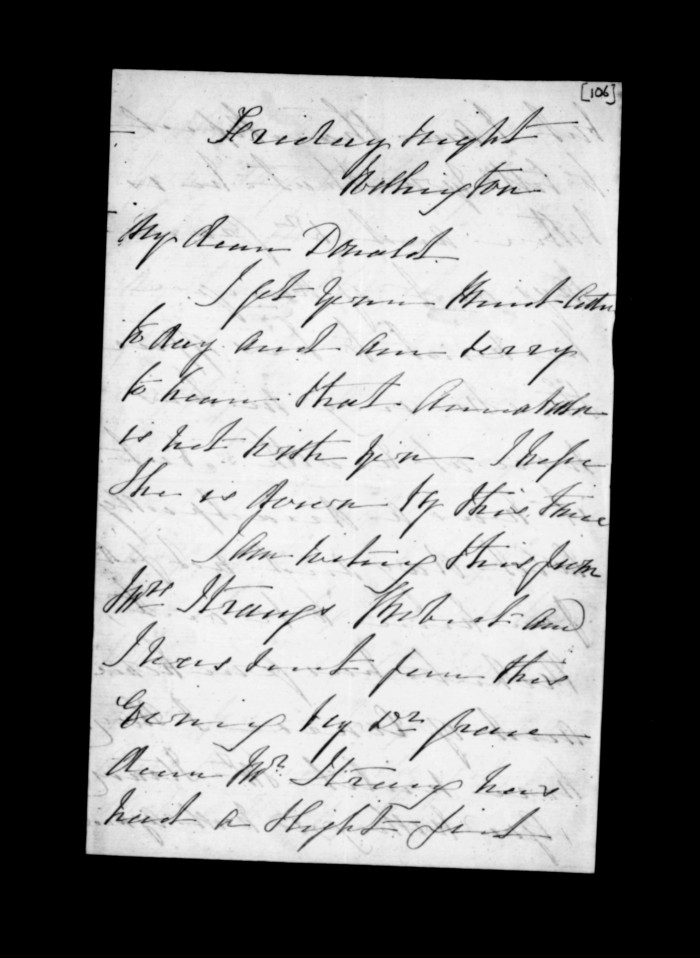 [106]
Friday Night
Wellington
My dear Donald
I got your kind letter
to day and am sorry
to hear that Annabella
is not with you I hope
She is down by this time
I am writing this from
Mrs Strangs Robert and
I was sent for this
Evening by Dr Grace
dear Mr Strang has
had a slight fint